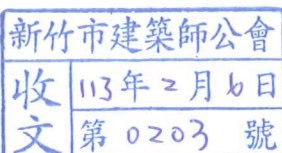 新竹市建築師公會
收文
113年2月6日
第 0203 號